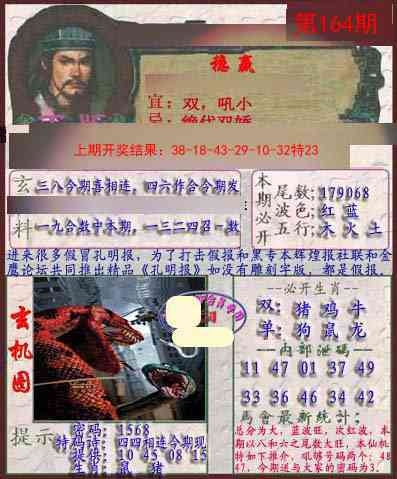 第164期
稳赢
宜：双，吼小
忌：绝代双娇
上期开奖结果：38-18-43-29-10-32特23
玄料
三八今期喜相连，四六作合今期发
一九合数中来期，一三二四召一数
本期必开
尾数:179068
波色:红 蓝
五行:木 火 土
进来很多假冒孔明报，为了打击假报和黑专本辉煌报社联和金
鹰论坛共同推出精品《孔明报》如没有雕刻字版，都是假报．
玄机图
--必开生肖--
双: 猪 鸡 牛
单: 狗 鼠 龙
--内部泄码--
11 47 01 37 49
33 36 46 34 42
馬會最新統計:
总分为大，蓝波旺，次红波，本
期以八和六之尾数大旺，本仙机
特如下推介，吼够号码两个：48
47，今期送与大家的密码为3．
提示
密码: 1568
特码诗: 四四相连今期现
提供: 10 45 08 15
生肖: 鼠 猪